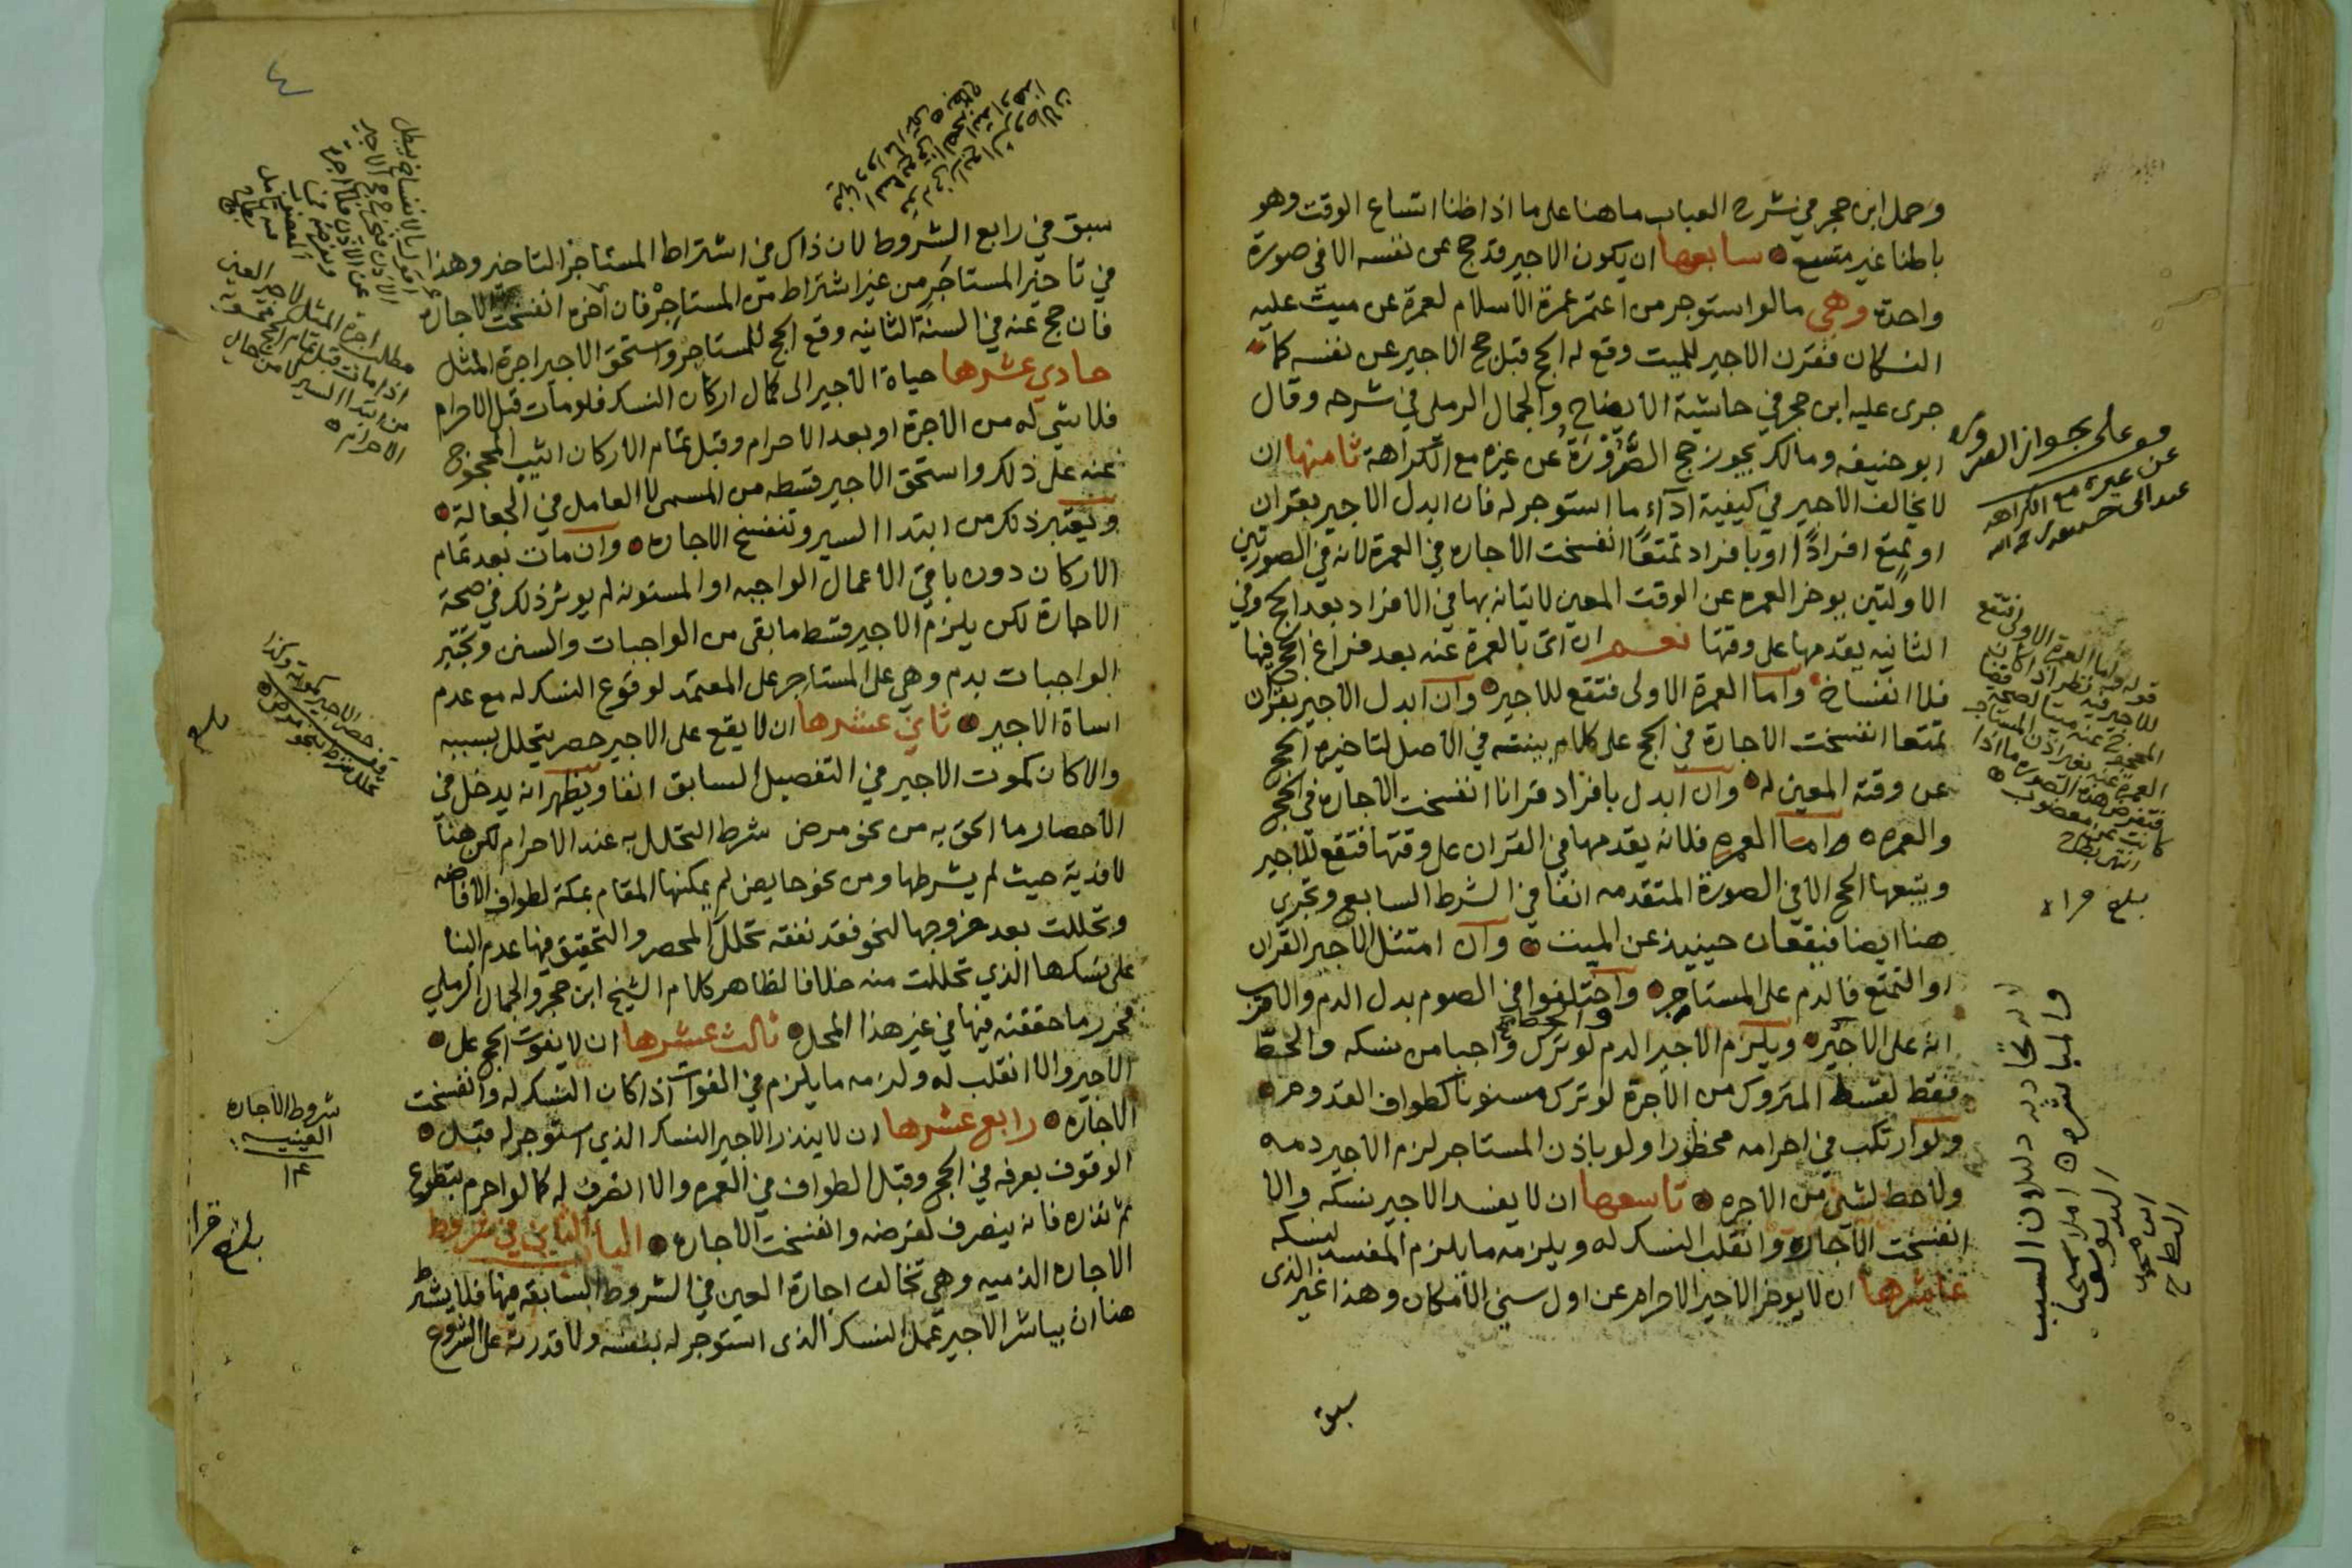 وحمل ابن حجر في شرح العباب ما هنا على ما اذا ظنا اتساع الوقت وهو
باطنا غير متسع سابعها ان يكون الاجير قد حج عن نفسه الا في صورة
واحدة وهي ما لو استوجر من اعتمر عمرة الاسلام لعمرة عن ميت عليه
النسكان فقرن الاجير للميت وقع له الحج قبل حج الاجير عن نفسه كما
جرى عليه ابن حجر في حاشية الايضاح والجمال الرملي في شرحه وقال
ابو حنيفه ومالك يجوز حج الصَّرُوْرَة عن غيره مع الكراهة ثامنها ان
لا يخالف الاجير في كيفية اداء ما استوجر له فان ابدل الاجير بقران
او تمتع افرادًا او بافراد تمتعًا انفسخت الاجاره في العمرة لانه في الصورتين
الاولتين يوخر العمره عن الوقت المعين لاتيانه بها في الافراد بعد الحج وفي
الثانيه يقدمها على وقتها نعم ان اتى بالعمرة عنه بعد فراغ الحج فيها
فلا انفساخ واما العمرة الاولى فتقع للاجير وان ابدل الاجير بقران
تمتعا انفسخت الاجارة في الحج على كلام بينته في الاصل لتاخيره الحج
عن وقته المعين له وان ابدل بافراد قرانا انفسخت الاجاره في الحج
والعمره واما العمره فلانه يقدمها في القران على وقتها فتقع للاجير
ويتبعها الحج الا في الصورة المتقدمه انفا في الشرط السابع وتجرى
هنا ايضا فيقعان حينيذ عن الميت وان امتثل الاجير القران
او التمتع فالدم على المستاجر واختلفوا في الصوم بدل الدم والاقرب
انه على الاجير ويلزم الاجير الدم لو ترك واجبا من نسكه والحط
فقط لقسط المتروك من الاجرة لو ترك مسنونا كطواف القدوم
ولو ارتكب في احرامه محظورا ولو باذن المستاجر لزم الاجير دمه
ولا حط لشي من الاجره تاسعها ان لا يفسد الاجير نسكه والا
انفسخت الاجاره وانقلب النسك له ويلزمه ما يلزم المفسد لنسكه
عاشرها ان لا يوخر الاجير الاحرام عن اول سني الامكان وهذا غير الذى
سبق
على بجواز الصروره
عن غيره مع الكراهه
قوله واما العمرة الاولى فتقع
للاجير فيه نظر
بلغ قراه
٤
سبق في رابع الشروط لان ذاك في اشتراط المستاجر التاخير وهذا
في تاخير المستاجر من غير اشتراط من المستاجر فان اخره انفسخت الاجاره
فان حج عنه في السنة الثانيه وقع الحج للمستاجر واستحق الاجير اجرة المثل
حادي عشرها حياة الاجير الى كمال اركان النسك فلو مات قبل الاحرام
فلا شي له من الاجرة او بعد الاحرام وقبل تمام الاركان اثيب المحجوج
عنه على ذلك واستحق الاجير قسطه من المسمى لا العامل في الجعالة
ويعتبر ذلك من ابتدا السير وتنفسخ الاجاره وان مات بعد تمام
الاركان دون باقي الاعمال الواجبه او المسنونه لم يوثر ذلك في صحة
الاجارة لكن يلزم الاجير قسط ما بقى من الواجبات والسنن وتجبر
الواجبات بدم وهي على المستاجر على المعتمد لوقوع النسك له مع عدم
اساة الاجير ثاني عشرها ان لا يقع على الاجير حصر يتحلل بسببه
والا كان كموت الاجير في التفصيل السابق انفا ويظهر انه يدخل في
الاحصار ما الحق به من نحو مرض شرط التحلل به عند الاحرام لكن هنا
لا فدية حيث لم يشرطها ومن نحو حايض لم يمكنها المقام بمكة لطواف الافاضه
وتحللت بعد خروجها لنحو فقد نفقه تحلل المحصر والتحقيق فيها عدم البنا
على نسكها الذي تحللت منه خلافا لظاهر كلام الشيخ ابن حجر والجمال الرملي
فحرر ما حققته فيها في غير هذا المحل ثالث عشرها ان لا يفوت الحج على
الاجير والا انقلب له ولزمه ما يلزم في الفوات اذا كان النسك له وانفسخت
الاجاره رابع عشرها ان لا ينذر الاجير النسك الذي استوجر له قبل
الوقوف بعرفه في الحج وقبل الطواف في العمره والا انصرف له كما لو احرم بتطوع
ثم نذره فانه ينصرف لفرضه وانفسخت الاجاره الباب الثاني في شروط
الاجاره الذميه وهي تخالف اجارة العين في الشروط السابقه فيها فلا يشترط
هنا ان يباشر الاجير عمل النسك الذى استوجر له بنفسه ولا قدرته على الشروع
مطلب اجرة المثل لاجير العين
اذا مات قبل تمام الحج
من ابتدا السير
شروط الاجاره
العينيه
١٤
بلغ قرا